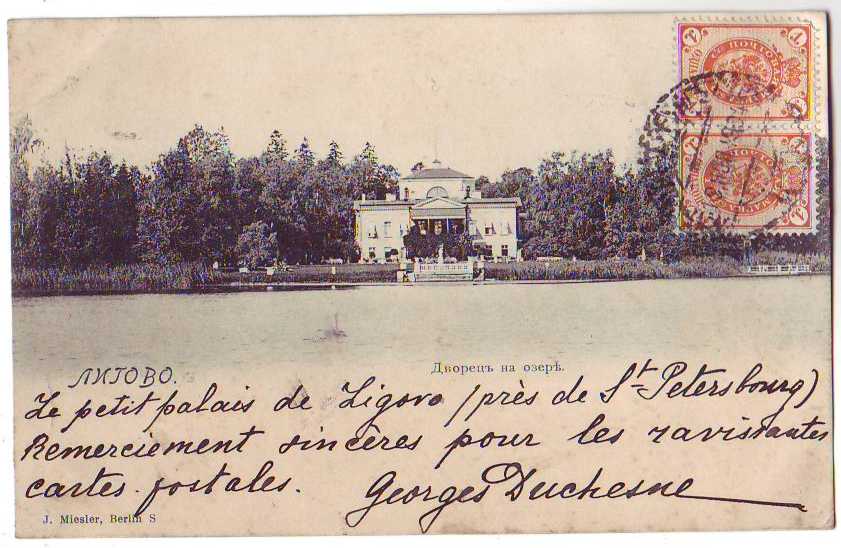 ЛИГОВО.
Дворецъ на озерѣ.
Le petit palais de Ligovo (près de St-Petersbourg)
Remerciement sincères pour les ravissantes
cartes postales. Georges Duchesne
J. Miesler, Berlin S